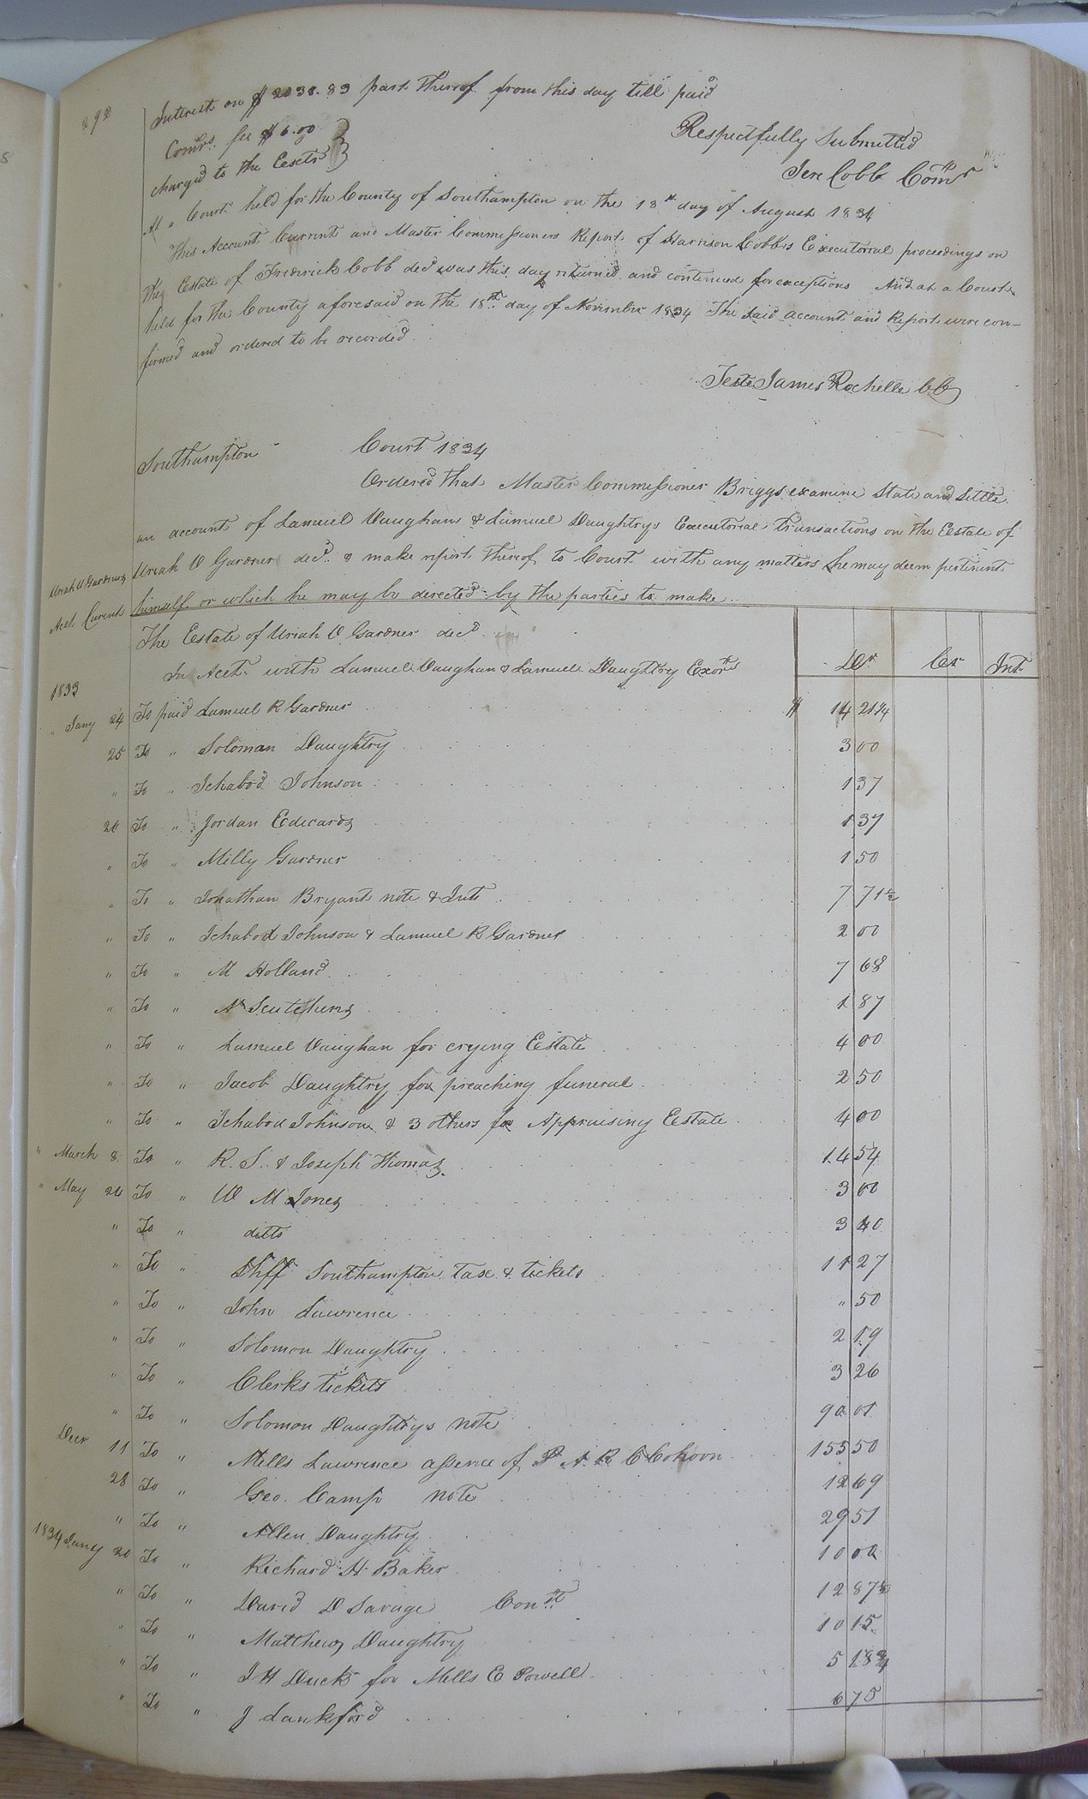 292
Interest on $2038.83 part thereof from this day till paid
Comrs. fee $6.00
charged to the Exectr
Respectfully Submitted
Jere Cobb Comr
At a Court held for the County of Southampton on the 18th day of August 1834
This Account Current and Master Commissioners Report of Harrison Cobbs Executorial proceedings on
the Estate of Fredirick Cobb decd was this day returned and continued for exceptions And at a Court
held for the County aforesaid on the 18th day of November 1834 The said account and Report were con-
firmed and ordered to be recorded
Teste James Rochelle CC
Southampton Court 1834
Ordered that Master Commissioner Briggs examine State and Settle
an account of Lamuel Vaughans & Lamuel Daughtrys Executorial transactions on the Estate of
Uriah W Gardner decd. & make report thereof to Court with any matters he may deem pertinent
himself or which he may be directed by the parties to make
Uriah W Gardners
Acct. Current
The Estate of Uriah W Gardner decd
In Acct. with Lamuel Vaughan & Lamuel Daughtry Exors Dr Cr Int
1833
" Jany 24 To paid Lamuel R Gardner $ 14 21 1/4
25 To " Soloman Daughtry 3 00
" To " Ichabod Johnson 1 37
26 To " Jordan Edwards 1 37
" To " Milly Gardner 1 50
" To " Jonathan Bryants note & Int 7 71 1/2
" To " Ichabod Johnson & Lamuel R Gardner 2 00
" To " M Holland 7 68
" To " Scutchins 1 87
" To " Lamuel Vaughan for crying Estate 4 00
" To " Jacob Daughtry for preaching funeral 2 50
" To " Ichabod Johnson & 3 others for Appraising Estate 4 00
" March 8 To " R. S. & Joseph Thomas 14 54
" May 24 To " W M Jones 3 00
" To " ditto 3 40
" To " Shff Southampton tax & tickets 11 27
" To " John Lawrence " 50
" To " Solomon Daughtry 2 19
" To " Clerks tickets 3 26
" To " Solomon Daughtrys note 90 01
Decr 11 To " Mills Lawrence assence of P. A. R C Cohoon 155 50
28 To " Geo. Camp note 12 69
" To " Allen Daughtry 29 51
1834 Jany 20 To " Richard H Baker 10 00
" To " David D Savage Cont 12 87 1/2
" To " Matthews Daughtry 10 15
" To " J H Duck for Mills E Powell 5 18 3/4
" To " J Lankford 6 75